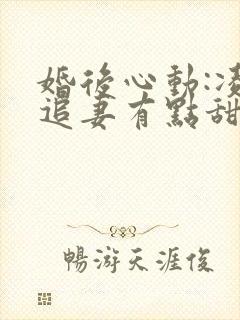 婚後心動:凌
追妻有點甜
暢游天涯俊